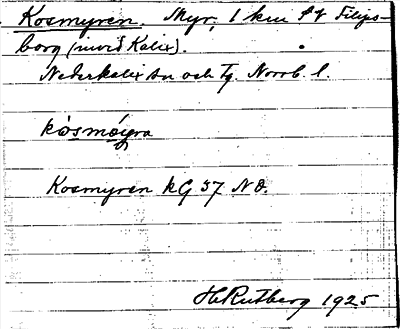 Kosmyren. Myr, 1 km f f Filips-
borg (invid Kalix).
Nederkalix sn och tg. Norrb. l.
kòsmo̱yra
Kosmyren kG 37 NO.
H Rutberg 1925